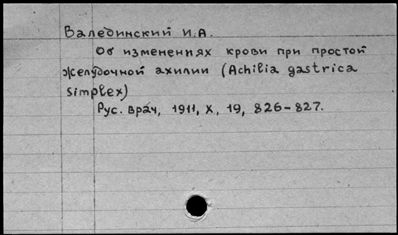 Валединский И.А.
Об изменениях крови при простой
желудочной ахилии (Achilia gastrica
simplex)
Рус. врач, 1911, X, 19, 826-827.